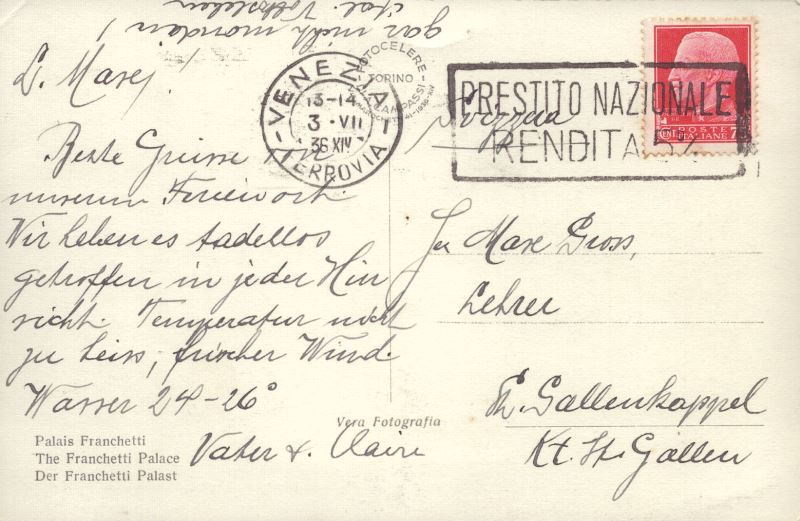 gar nicht mondän !
ital. Volksleben
L. Maxej!
Beste Grüsse v.
unserm Ferienort.
Wir haben es tadellos
getroffen in jeder Hin
sicht. Temperatur nicht
zu heiss, frischer Wind.
Wasser 24-26°
Vater & Claire
Palais Franchetti
The Franchetti Palace
Der Franchetti Palast
Vera Fotografia
FOTOCELERE
TORINO
VENEZIA
13-14
3 · VII
36 XIV
FERROVIA
PRESTITO NAZIONALE
RENDITA 5%
POSTE
ITALIANE
CENT. 75
Svizzera
Max Gross,
Lehrer
St. Gallenkappel
Kt. St. Gallen